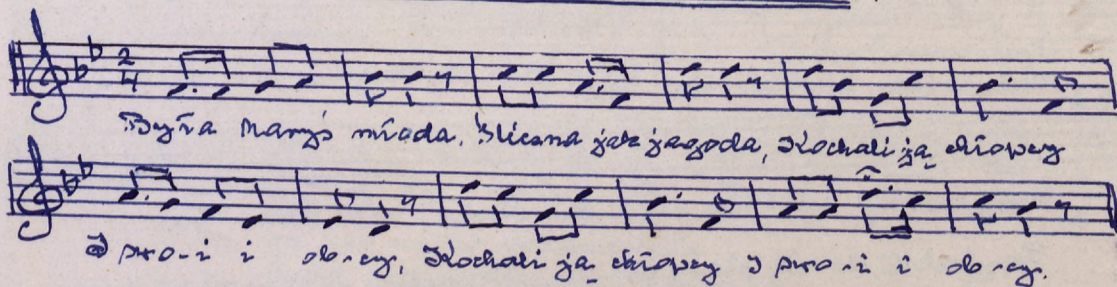 2
4
Była Maryś młoda, Śliczna jak jagoda, Kochali ją chłopcy
I swo-i i ob-cy, Kochali ją chłopcy I swo-i i ob-cy.